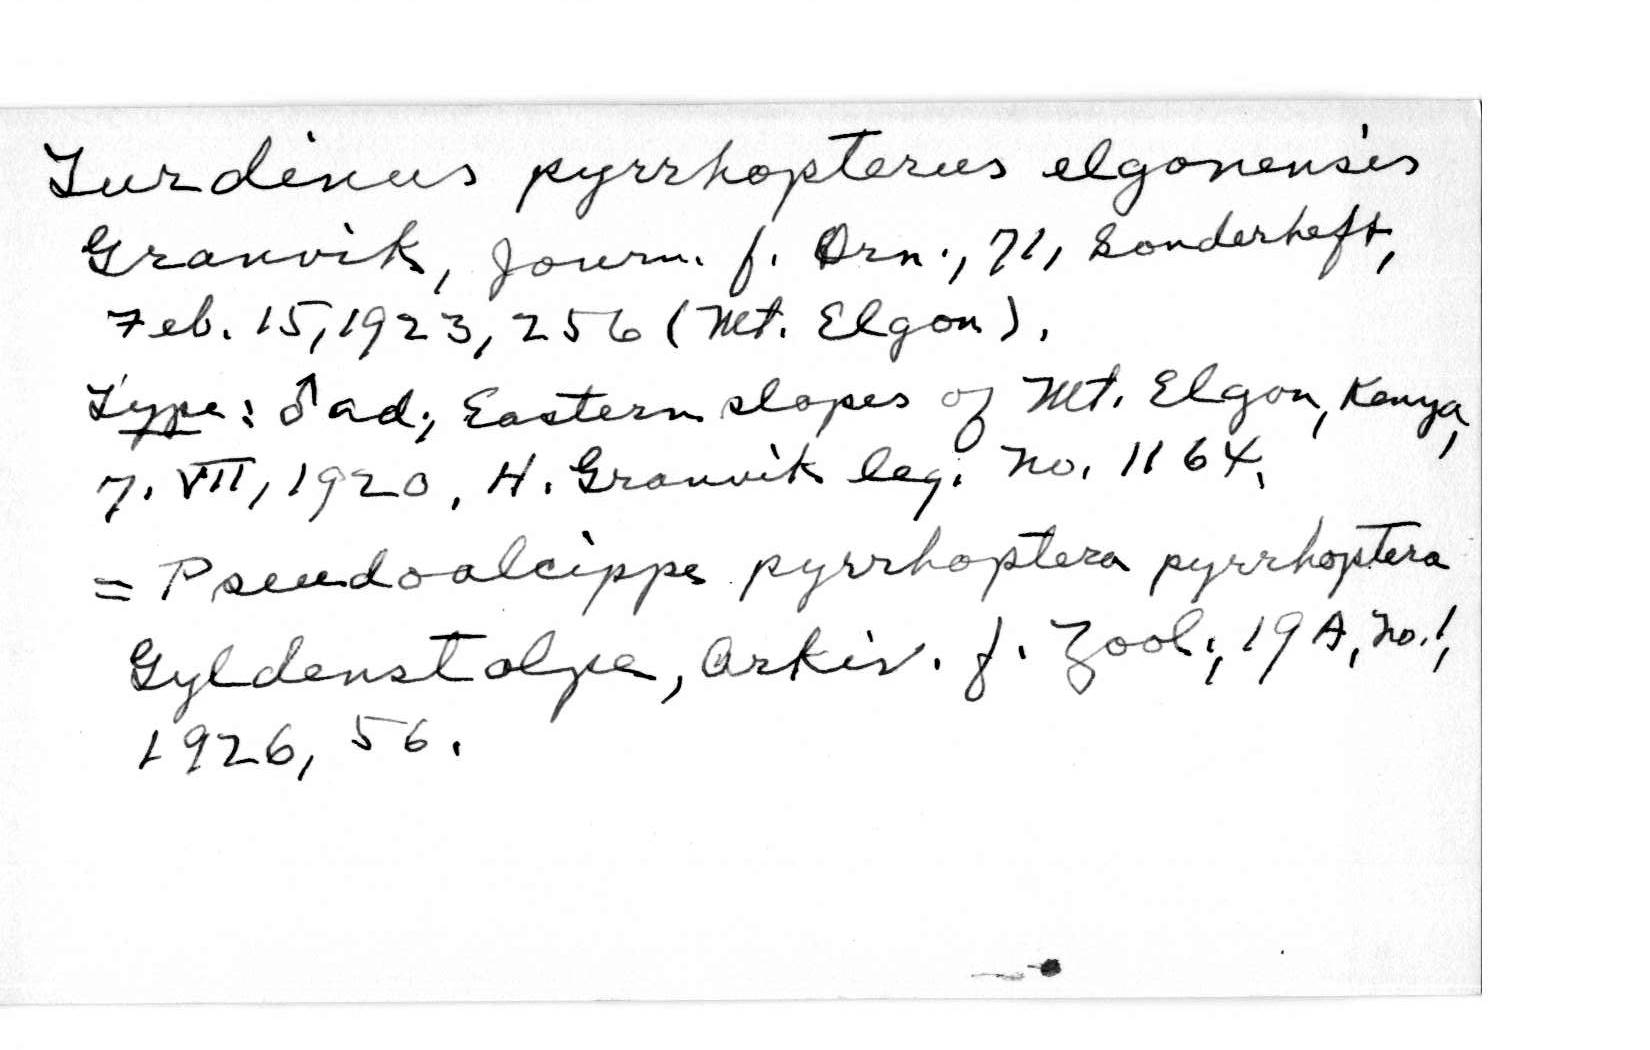 Turdinus pyrrhopterus elgonensis
Granvik, Journ. f. Orn., 71, Sonderheft,
Feb. 15, 1923, 256 (Mt. Elgon).
Type: ♂ ad; Eastern slopes of Mt. Elgon, Kenya,
7. VII, 1920, H. Granvik leg. No. 1164.
= Pseudoalcippe pyrrhoptera pyrrhoptera
Gyldenstolpe, Arkiv. f. Zool., 19 A, No. 1,
1926, 56.